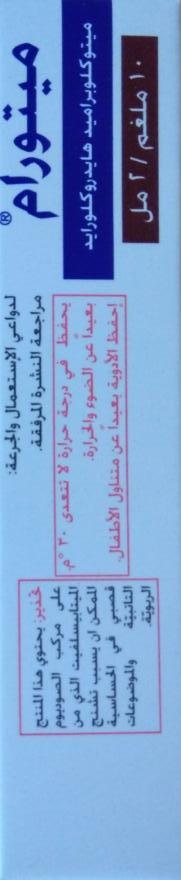 ميتورام®
ميتوكلوبراميد هايدروكلورايد
١٠ ملغم / ٢ مل
لدواعي الإستعمال والجرعة:
مراجعة النشرة المرفقة.
يحفظ في درجة حرارة لا تتعدى ٣٠ °م،
بعيداً عن الضوء والحرارة.
إحفظ الأدوية بعيداً عن متناول الأطفال.
تحذير: يحتوي هذا المنتج
على مركب الصوديوم
الميتابيسلفيت الذي من
الممكن ان يسبب تشنج
قصبي في الحساسية
التأتبية والموضوعات
الربوية.